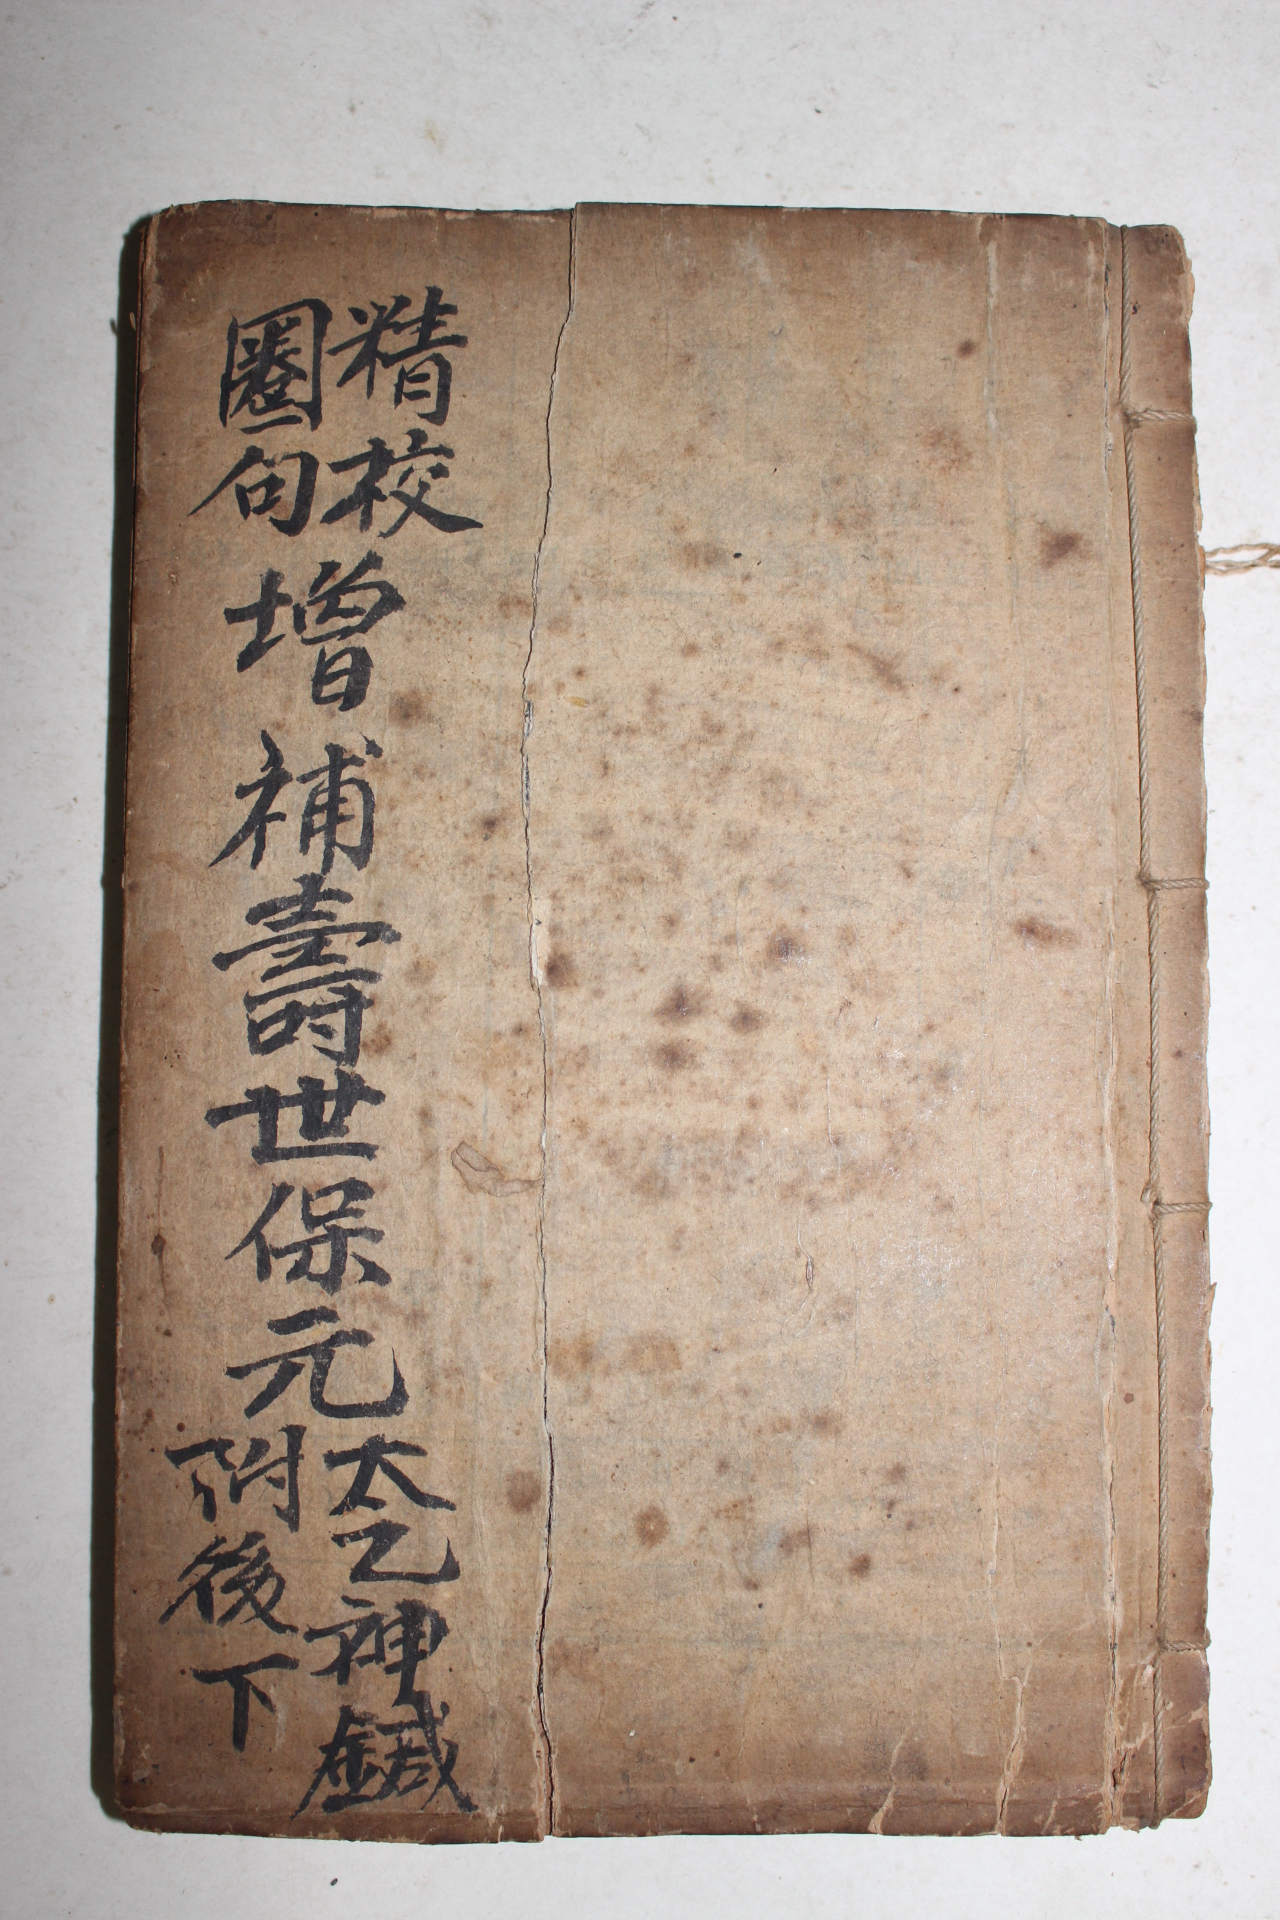 精校
圈句
增補壽世保元
太乙神鍼
附後下